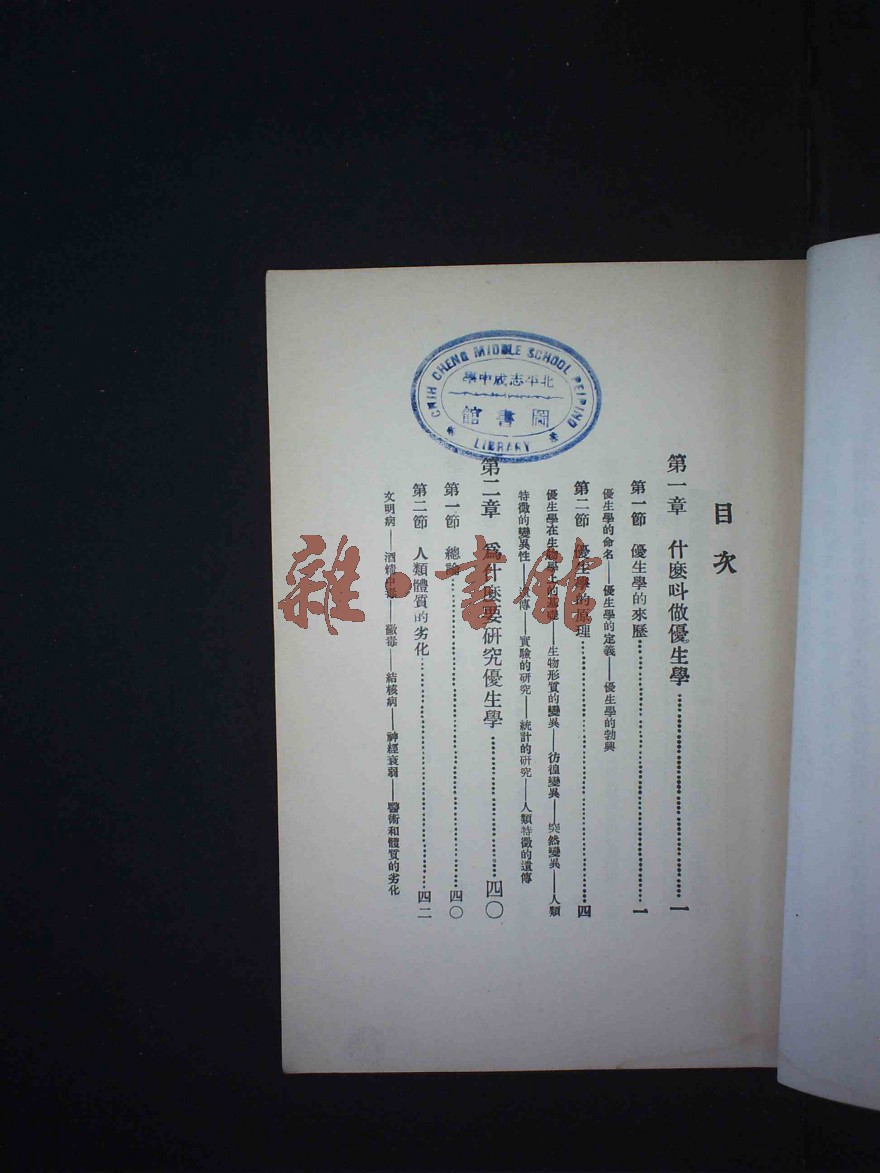 CHIH CHENG MIDDLE SCHOOL PEIPING
北平志成中學
圖書館
LIBRARY
目次
第一章 什麼叫做優生學……一
第一節 優生學的來歷……一
優生學的命名——優生學的定義——優生學的勃興
第二節 優生學的原理……四
優生學在生物學上的基礎——生物形質的變異——彷徨變異——突然變異——人類
特徵的變異性——遺傳——實驗的研究——統計的研究——人類特徵的遺傳
第二章 爲什麼要研究優生學……四〇
第一節 總論……四〇
第二節 人類體質的劣化……四二
文明病——酒精中毒——黴毒——結核病——神經衰弱——醫術和體質的劣化
雜·書館